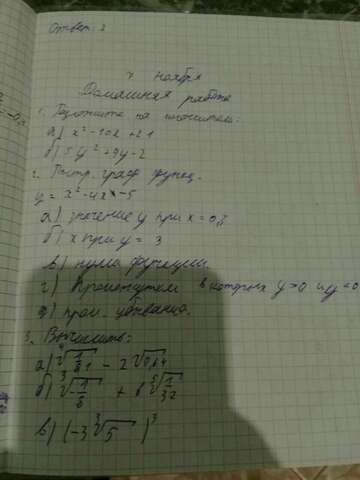 Ответ: 2
7 ноября
Домашняя работа
1. Разложите на множители:
а) x² - 10x + 21
б) 5y² + 9y - 2
2. Постр. граф функц.
y = x² - 4x - 5
а) значение y при x = 0,5
б) x при y = 3
в) нули функции.
г) Промежутки в которых y>0 и y<0
д) пром. убывания.
3. Вычислить:
а) ⁴√(1/81) - 2√0,64
б) ³√(-1/8) + 6 ⁵√(1/32)
в) (-3 ³√5)³